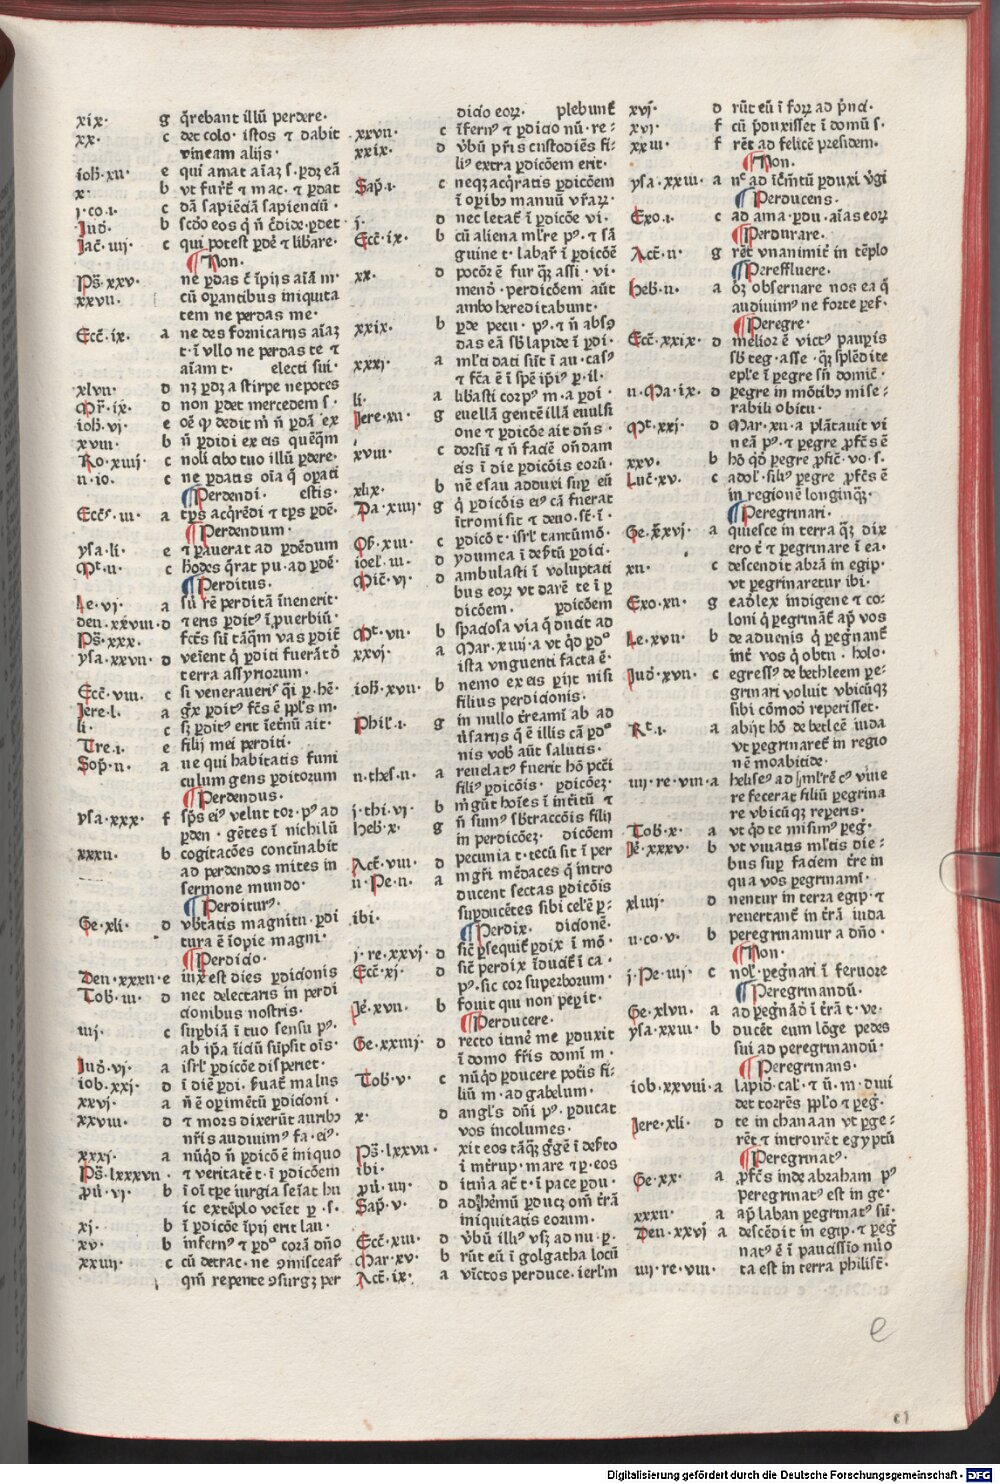 xix· g q̄rebant illū perdere·
xx· c det colo· istos ⁊ dabit
vineam alijs·
iob·xii· e qui amat aīaʒ s·ꝑdʒ eā
x· b vt furͭ ⁊ mac· ⁊ ꝑdat
j·co·i· c dā sapiēciā sapienciū·
Iud̄· b scd̄o eos q̄ n̄ c̄dide·ꝑdet
Iac̄·iiij· c qui potest ꝑdē ⁊ libare·
¶Non·
Ps̄·xxv· ne ꝑdas c̄ īpijs aīā m·
xxvii· cū oꝑantibus iniquita
tem ne perdas me·
Ecc̄·ix· a ne des fornicarijs aīaʒ
t·ī vllo ne perdas te ⁊
aīam t· electi sui·
xlvii· d nʒ ꝑdʒ a stirpe nepotes
Pr̄·ix· d non ꝑdet mercedem s·
iob·vj· e oē qd̄ dedit m̄ n̄ ꝑdā ex
xviii· b n̄ ꝑdidi ex eis quēqm̄
Ro·xiiij· c noli cibo tuo illū ꝑdere·
ii·io· c ne ꝑdatis oīa q̄ oꝑati
¶Perdendi· estis·
Ecc̄s·iii· a tp̄s acq̄rēdi ⁊ tp̄s ꝑdē·
¶Perdendum·
ysa·li· e ⁊ ꝑauerat ad ꝑdēdum
Mt·ii· c hodes q̄rat pu·ad ꝑdē·
¶Perditus·
Le·vj· a siū rē perditā īnenerit·
deu·xxviii·d ⁊ eris ꝑditꝰ ī ꝓuerbiū·
Ps̄·xxx· fcs̄ sū tāqm̄ vas ꝑdit̄
ysa·xxvii· d veīent q̄ ꝑditi fuerāt ō
terra assyriorum·
Ecc̄·viii· c si venerauerꝭ q̄i ꝑ·hē·
Iere·l· a gx̄ ꝑditꝰ fcs̄ ē ppls̄ m·
li· c sʒ ꝑditꝰ erit īet̄nū ait·
Tre·i· e filij mei perditi·
Sop̄·ii· a ne qui habitatis funi
culum gens ꝑditorum
¶Perdendus·
ysa·xxx· f sp̄s eiꝰ velut tor·pꝰ ad
ꝑden·gētes ī nichilū
xxxii· b cogitacōes concīnabit
ad perdendos mites in
sermone mundo·
¶Perditur·
Ge·xli· d vb̄tatis magnitu·ꝑdi
tura ē īopie magni·
¶Perdicio·
Deu·xxxii·e iux̄ est dies ꝑdicionis
Tob̄·iii· d nec delectaris in perdi
cionibus nostris·
iiij· c suꝑbiā ī tuo sensu pꝰ·
ab ip̄a īiciū sūpsit oīs·
Iud̄·vj· a isrl̄ ꝑdicōe disperiet·
iob·xxj· d ī diē ꝑdi·ẜuat̄ malus
xxvj· a n̄ ē oꝑimētū ꝑdicioni·
xxviii· d ⁊ mors dixerūt auribꝰ
nr̄is audiuimꝰ fa·eiꝰ·
xxxj· a nūqd̄ n̄ ꝑdicō ē iniquo
Ps̄·lxxxvii· ⁊ veritatē t·ī ꝑdicōem
ꝓū·vj· b ī oī tꝑe iurgia seīat hu
ic extēplo veīet ꝑ·s·
xj· b ī ꝑdicōe īpij erit lau·
xv· b infernꝰ ⁊ ꝑdꝰ corā dn̄o
xxiiij· c cū detrac·ne ꝯmiscearꝭ
qm̄ repente ꝯsurgʒ per
dicio eoꝝ· plebunt̄
xxvii· c īfernꝰ ⁊ ꝑdicio nū·re-
xxix· d vb̄ū pr̄is custodiēs fi-
liꝰ extra ꝑdicōem erit·
Sap̄·i· c neqʒ acq̄ratis ꝑdicōem
ī oꝑibꝰ manuū vr̄aꝝ·
j· d nec letat̄ ī ꝑdicōe vi·
Ecc̄·ix· b cū aliena ml̄re pꝰ·⁊ sā
guine t·labarꝭ ī ꝑdicōē
xx· d pocōr ē fur qʒ assi·vi·
menō·perdicōem aūt
ambo hereditabunt·
xxix· b ꝑde pecu·pꝰ·⁊ n̄ absꝯ
das eā sb̄ lapide ī ꝑdi·
xxxj· a ml̄ti dati sūt ī au·casꝰ
⁊ fc̄a ē ī spē ip̄iꝰ ꝑ·il·
li· a libasti corpꝰ m·a ꝑdi·
Iere·xii· g euellā gentē illā euulsi
one ⁊ ꝑdicōe ait dn̄s·
xviii· c dorsū ⁊ n̄ faciē on̄dam
eis ī die ꝑdicōis eorū·
xlix· b nē esau adduxi suꝑ eū
Da·xiiij· g q̄ ꝑdicōis eiꝰ cā fuerat
ītromisit ⁊ deuo·st̄·ī·
Os̄·xiii· c ꝑdicō t·isrl̄ tantūmō·
ioel·iii· d ydumea ī deẜtū ꝑdici·
Mic̄·vj· d ambulasti ī voluptati
bus eoꝝ vt darē te ī ꝑ
dicōem· ꝑdicōem
Mt̄·vii· b spaciosa via q̄ ducit ad
xxvj· a Mar·xiiij·a vt qd̄ ꝑdꝰ
ista vnguenti facta ē·
ioh̄·xvii· b nemo ex eis ꝑijt nisi
filius perdicionis·
Phil̄·i· g in nullo t̄reamī ab ad
ūsarijs q̄ ē illis cā ꝑdꝰ
nis vob̄ aūt salutis·
ii·thes·ii· a reuelatꝰ fuerit hō pcc̄i
filiꝰ ꝑdicōis· ꝑdicōeʒ·
j·thi·vj· b m̄gūt hoīes ī int̄itū ⁊
heb̄·x· g n̄ sumꝰ sb̄traccōis filij
in perdicōeʒ· dicōem
Act̄·viii· d pecunia t·tecū sit ī per
ii·Pe·ii· a mgr̄i mēdaces q̄ intro
ducent sectas ꝑdicōis
ibi· suꝑducētes sibi celē ꝑ-
¶Perdix· dicionē·
j·re·xxvj· d sic̄ ꝑsequit̄ ꝑdix ī mō·
Ecc̄·xj· d sic̄ perdix īducit̄ ī ca·
pꝰ·sic cor superborum·
Ie·xvii· b fouit qui non peꝑit·
¶Perducere·
Ge·xxiiij· d recto itinē me ꝑduxit
ī domo fr̄is domī m·
Tob̄·v· c nūqd̄ ꝑducere potīs fi-
liū m·ad gabelum·
x· d angl̄s dn̄i pꝰ·ꝑducat
vos incolumes·
Ps̄·lxxvii· xit eos tāqʒ ḡgē ī deẜto
ibi· ī mt̄rup·mare ⁊ ꝑ·eos
ꝓū·iiij· d itīna at̄·t·ī pace ꝑdu·
Sap̄·v· d adqʒhēmū ꝑducʒ om̄ t̄rā
iniquitatis eorum·
Ecc̄·xiii· d vb̄ū illiꝰ vsʒ ad nu·ꝑ·
Mar·xv· b rūt eū ī golgatha locū
Act̄·ix· a vīctos perduce·ierl̄m
xvj· d rūt eū ī foꝝ ad p̄nci·
xvj· f cū ꝓduxisset ī domū s·
xxiii· f rēt ad felicē presidem·
¶Non·
ysa·xxiii· a nᶜ ad īcr̄mtū ꝑduxi v̄gi
¶Perducens·
Exo·i· c ad ama·ꝑdu·aīas eoꝝ
¶Perdurare·
Act̄·ii· g rēt vnanimit̄ in tēplo
¶Pereffluere·
heb̄·ii· a oʒ obseruare nos ea q̄
audiuimꝰ ne forte ꝑef·
¶Peregre·
Ecc̄·xxix· d melior ē victꝰ pauꝑis
sb̄ teg·asse·qʒ splēdite
eple ī ꝑegre sn̄ domic̄·
ii·Ma·ix· d ꝑegre in mōtibꝰ mise-
rabili obitu·
Mt̄·xxj· d Mar·xii·a plātauit vi
neā pꝰ·⁊ ꝑegre ꝓfcs̄ ē
xxv· b hō qd̄ ꝑegre ꝓfic̄·vo·s·
Luc̄·xv· c adol·filiꝰ ꝑegre ꝓfcs̄ ē
in regionē longinqʒ·
¶Peregrinari·
Ge·xxvj· a quiesce in terra qʒ dix
ero t̄ ⁊ ꝑegrinare ī ea·
xii· c descendit abrā in egip·
vt ꝑegrinaretur ibi·
Exo·xii· g eadē lex indigene ⁊ co-
loni q̄ ꝑegrināt̄ ap̄ vos
Le·xvii· b de aduenis q̄ ꝑeḡnant̄
int̄ vos q̄ obtu·holo·
Iud̄·xvii· c egressꝰ de bethleem ꝑe-
grinari voluit vbicūqʒ
sibi cōmod̄ reperisset·
Rt̄·i· a abijt hō de betleē iuda
vt ꝑegrinaret̄ in regio
nē moabitide·
iiij·re·viii·a heliseꝰ ad ml̄rē cꝰ viue
re fecerat filiū ꝑegrina
re vbicūqʒ reperis·
Tob̄·x· a vt qd̄ te misimꝰ ꝑeḡ·
Ie·xxxv· b vt viuatis ml̄tis die-
bus suꝑ faciem t̄re in
qua vos ꝑegrinamī·
xliiij· d nentur in terra egip·⁊
reuertant̄ in t̄rā iuda
ii·co·v· b peregrinamur a dn̄o·
¶Non·
j·Pe·iiij· c nol̄·ꝑeḡnari ī feruore
¶Peregrinandū·
Ge·xlvii· a ad ꝑeḡnād̄ ī t̄rā t·ve·
ysa·xxiii· b ducēt eum lōge pedes
sui ad peregrinandū·
¶Peregrinans·
iob·xxviii·a lapid̄·cal·⁊ ū·m·diui
det torrēs ppl̄o ⁊ ꝑeḡ·
Iere·xli· d te in chanaan vt ꝑge-
rēt ⁊ introirēt egyptū
¶Peregrinatꝰ·
Ge·xx· a ꝓfcs̄ inde abraham pꝰ
peregrinatꝰ est in ge·
xxxii· a ap̄ laban ꝑegrinatꝰ sū·
Deu·xxvj a descēdit in egip·⁊ ꝑeḡ
natꝰ ē ī paucissīo nūo
iiij·re·viii· ta est in terra philist̄·
e
e1
Digitalisierung gefördert durch die Deutsche Forschungsgemeinschaft - DFG